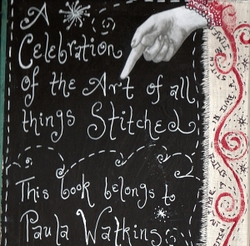 A
Celebration
of the Art of all
things Stitched
This book belongs to
Paula Watkins